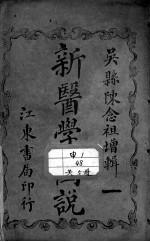 吳縣陳念祖增輯 一
新醫學
說
江東書局印行
申1
48
共5冊